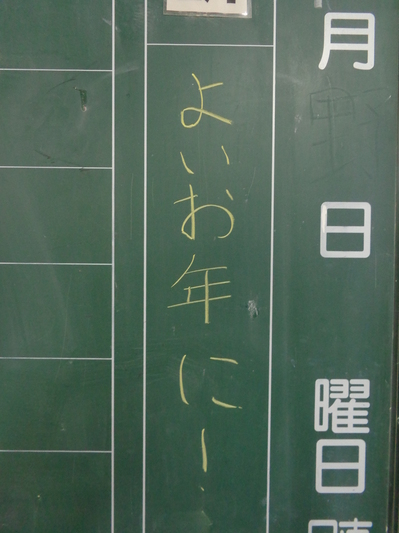 月 日 曜日
よいお年にー